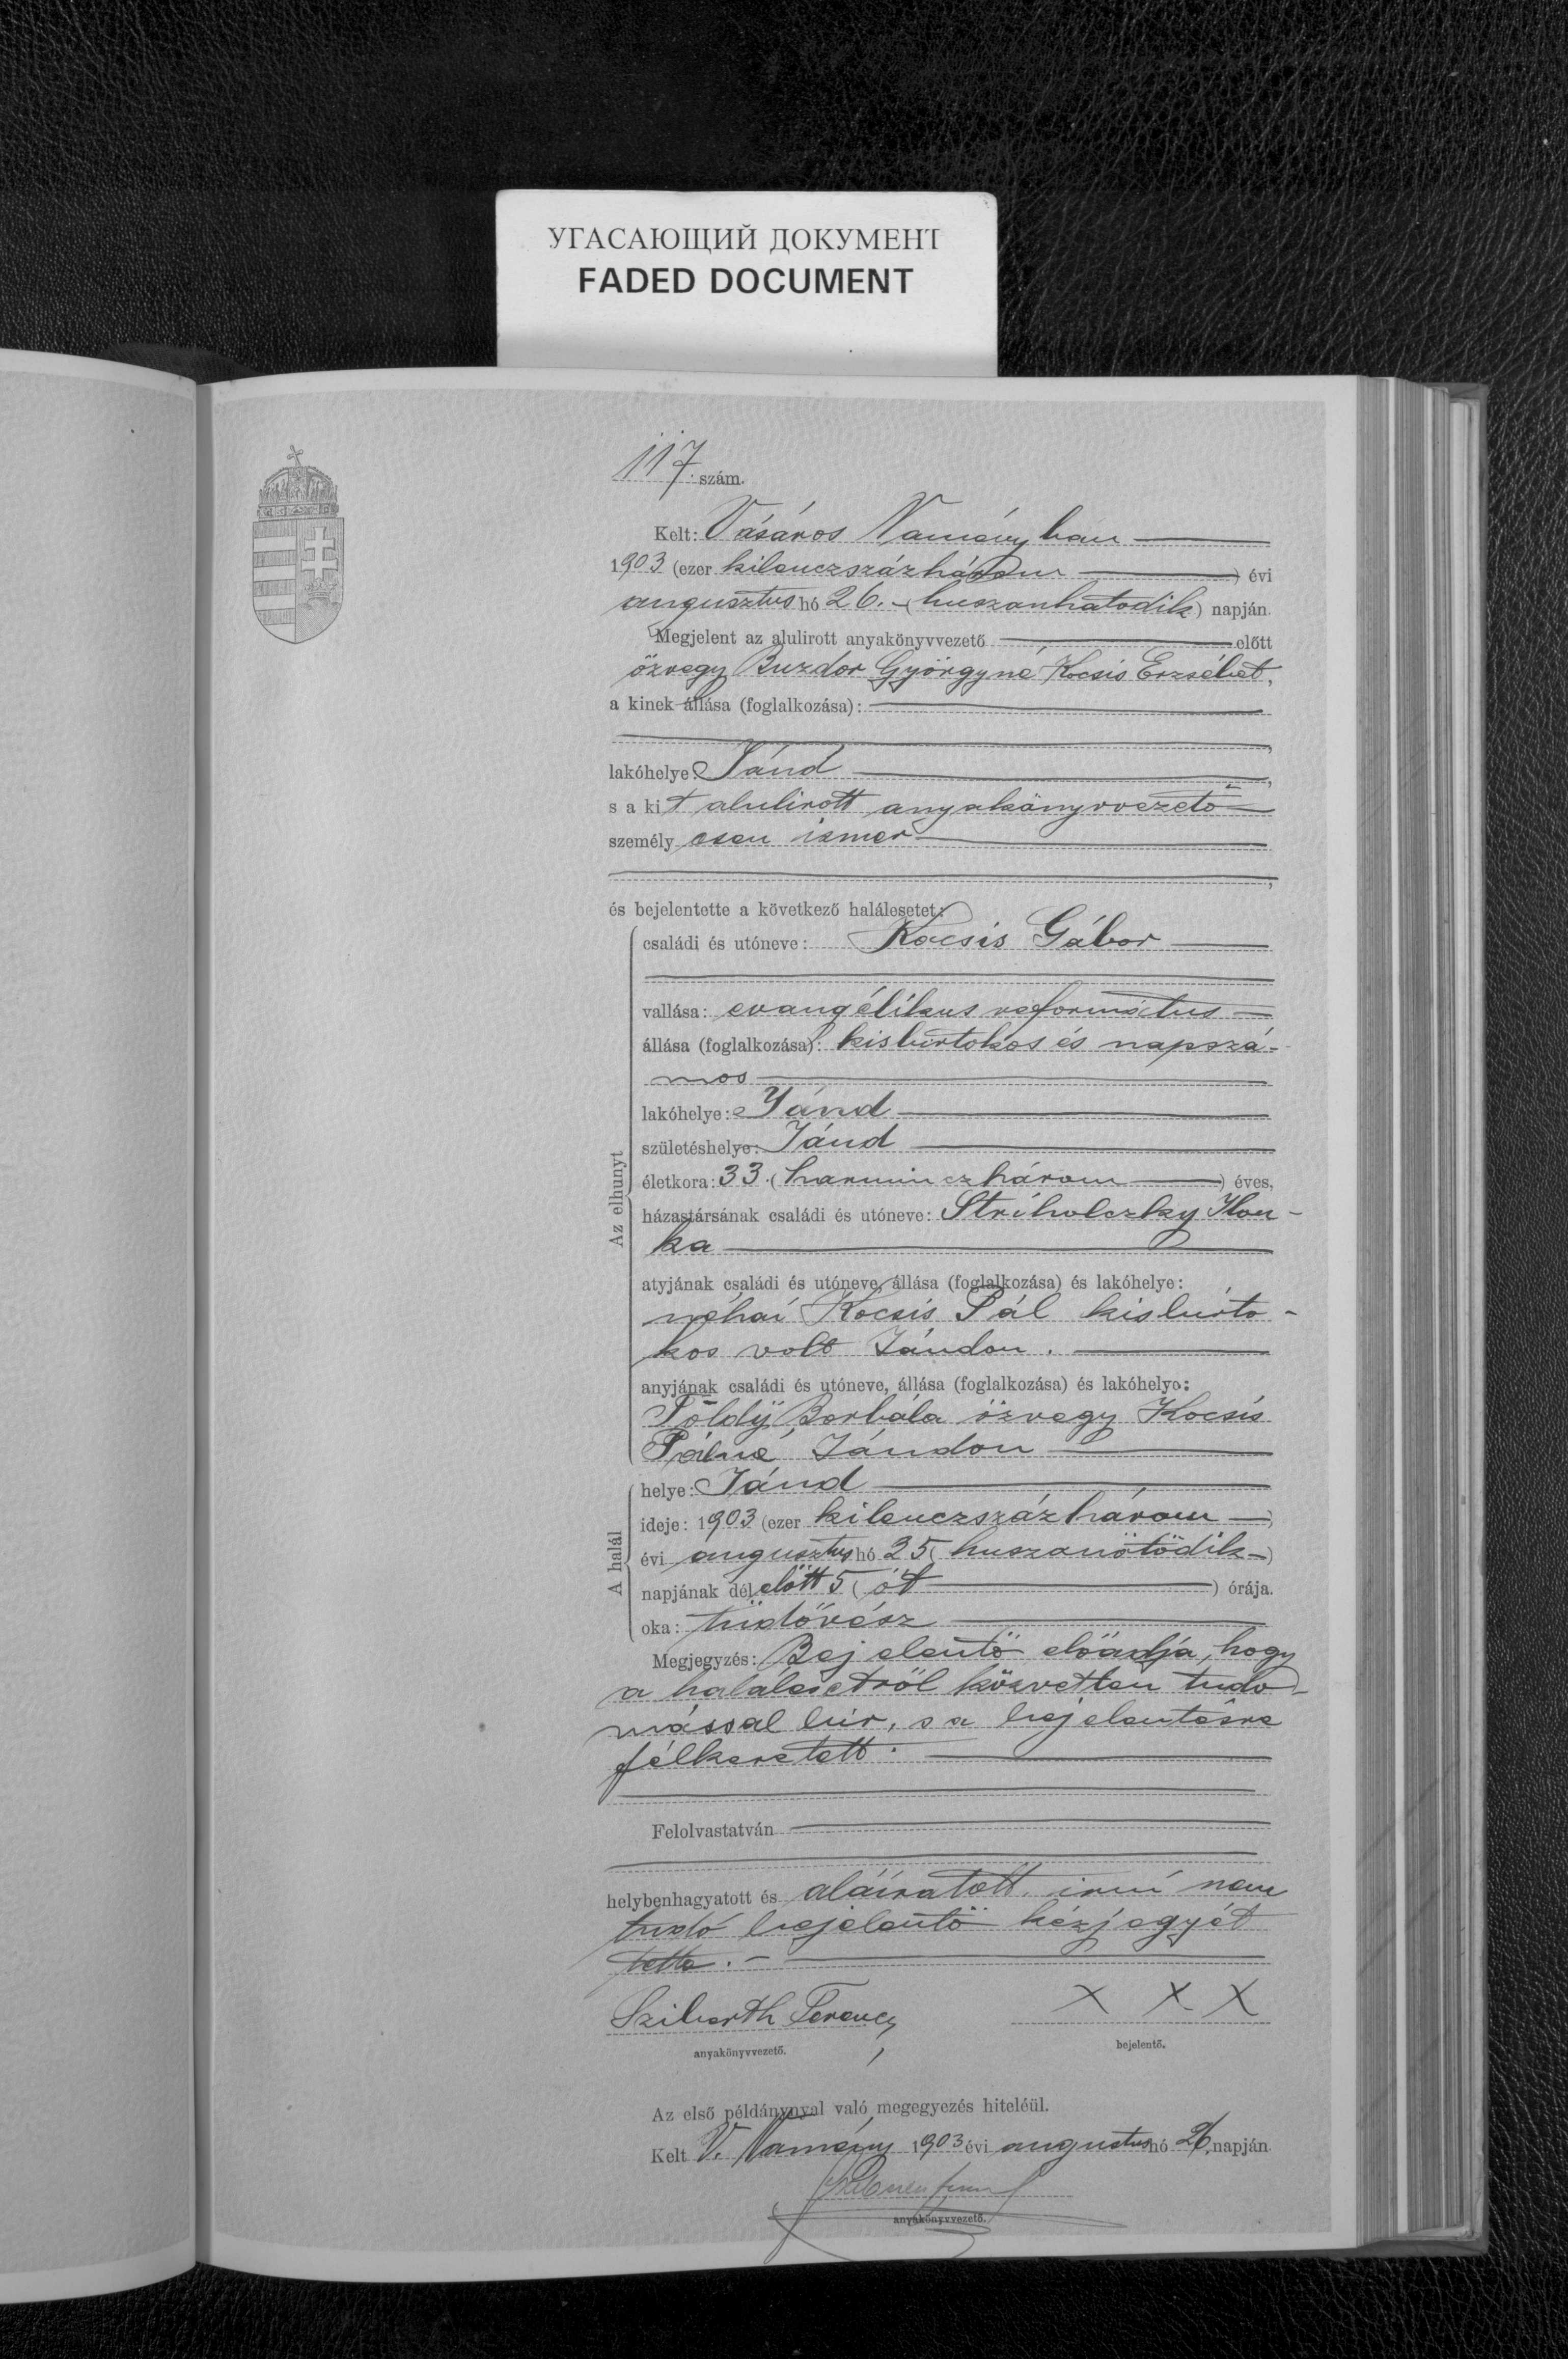 УГАСАЮЩИЙ ДОКУМЕНТ
FADED DOCUMENT
117. szám.
Kelt: Vásáros Naményban
1903 (ezer kilenczszázhárom) évi
augusztus hó 26. (huszonhatodik) napján.
Megjelent az alulirott anyakönyvvezető előtt
özvegy Buzdor Györgyné Kocsis Erzsébet,
a kinek állása (foglalkozása):
lakóhelye: Jánd,
s a kit alulirott anyakönyvvezető
személyesen ismer,
és bejelentette a következő halálesetet:
Az elhunyt
családi és utóneve: Kocsis Gábor
vallása: evangélikus református
állása (foglalkozása): kisbirtokos és napszá-
mos
lakóhelye: Jánd
születéshelye: Jánd
életkora: 33. (harminczhárom) éves,
házastársának családi és utóneve: Striholczky Ilon-
ka
atyjának családi és utóneve, állása (foglalkozása) és lakóhelye:
néhai Kocsis Pál kisbirto-
kos volt Jándon.
anyjának családi és utóneve, állása (foglalkozása) és lakóhelye:
Földÿ Borbála özvegy Kocsis
Pálné, Jándon
A halál
helye: Jánd
ideje: 1903 (ezer kilenczszázhárom)
évi augusztus hó 25 (huszonötödik)
napjának délelőtt 5 (öt) órája.
oka: tüdővész
Megjegyzés: Bejelentő előadja, hogy
a halálesetről közvetlen tudo-
mással bir, s a bejelentésre
félkeretett.
Felolvastatván
helybenhagyatott és aláiratott. irni nem
tudó bejelentő kézjegyét
tette.
Sziberth Ferencz X X X
anyakönyvvezető. bejelentő.
Az első példánynyal való megegyezés hiteléül.
Kelt V. Namény 1903 évi augustus hó 26. napján.
anyakönyvvezető.